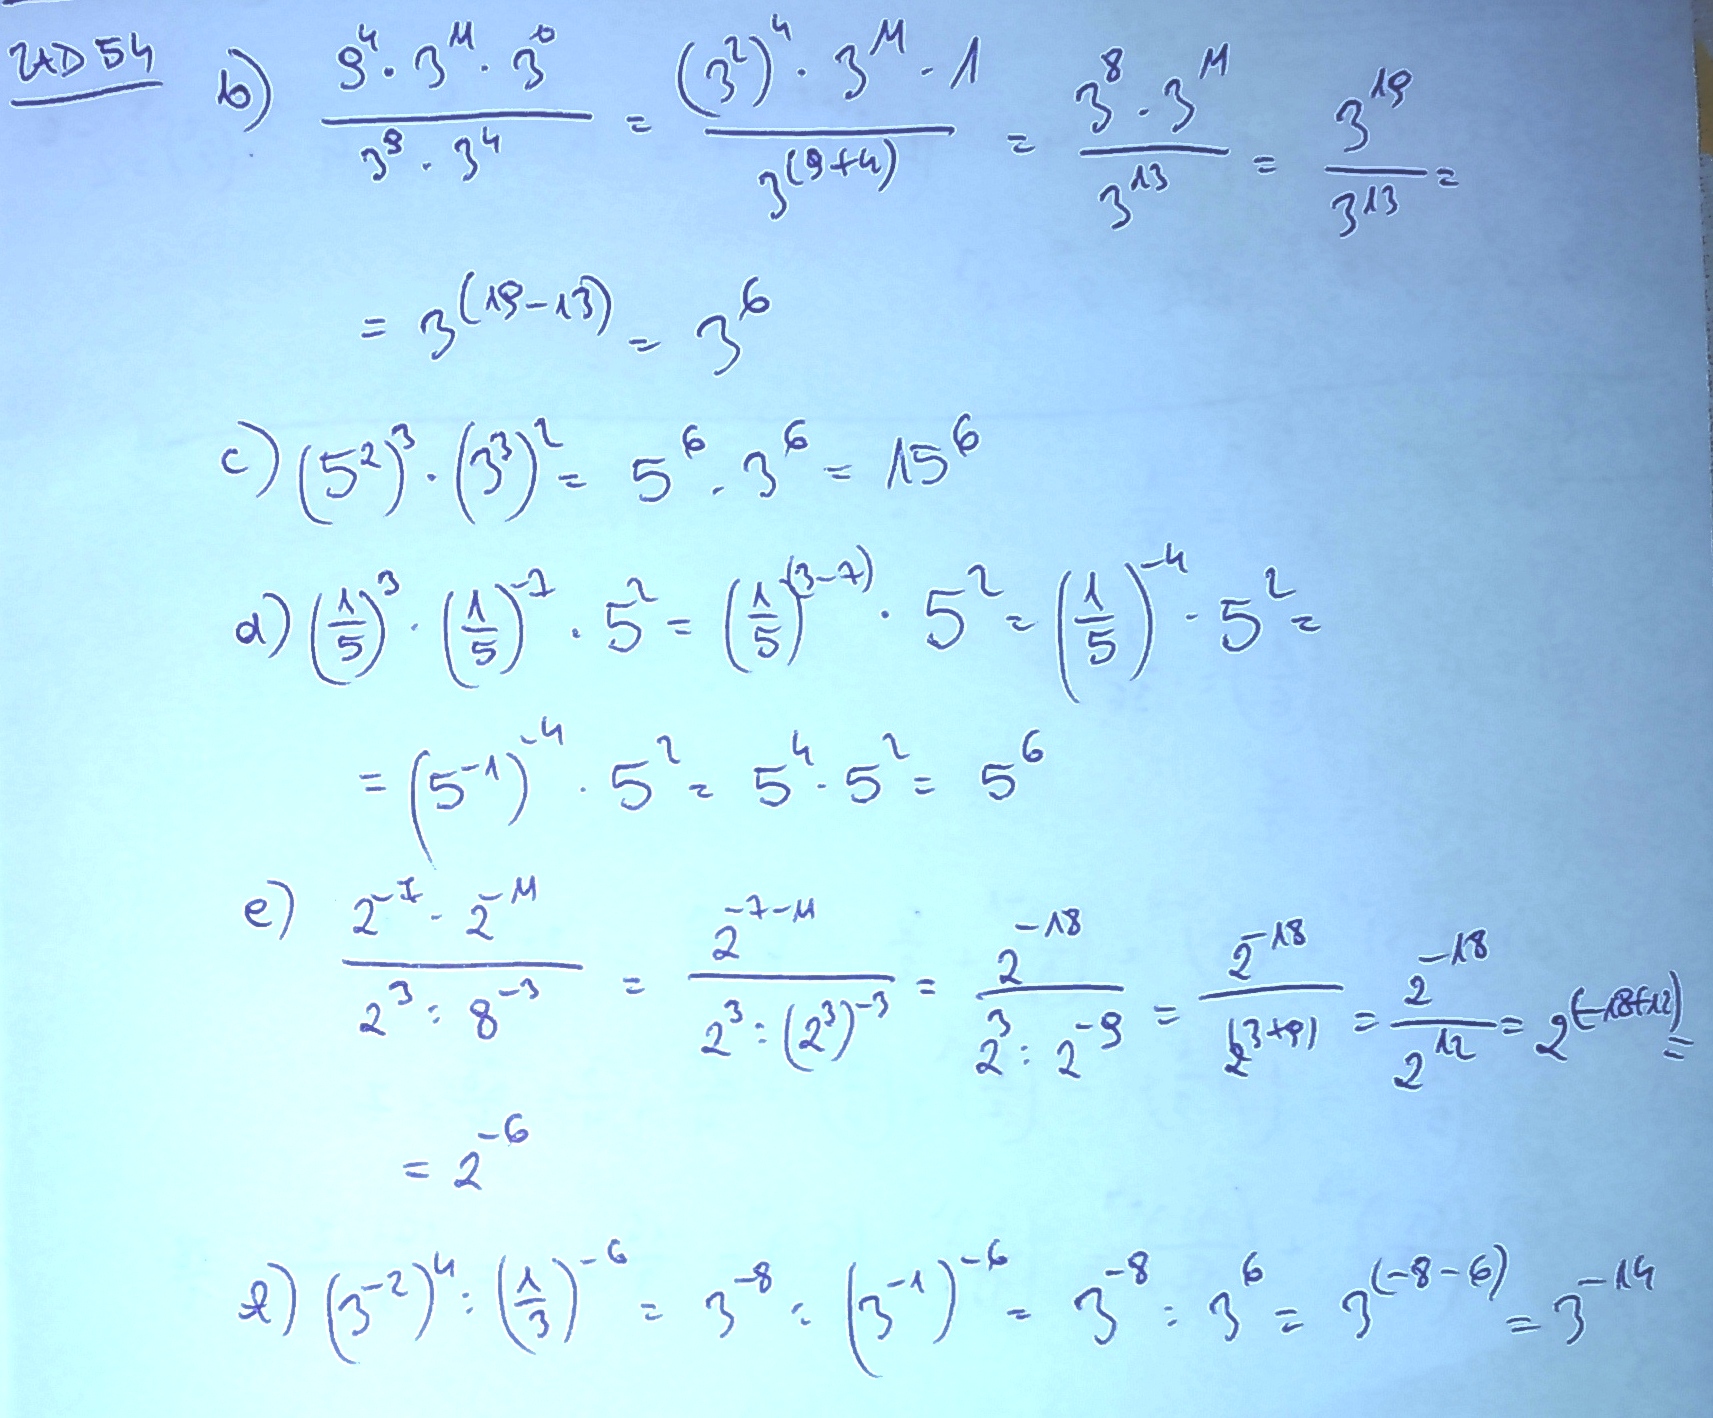 ZAD 54 b) \frac{9^4 · 3^{11} · 3^0}{3^9 · 3^4} = \frac{(3^2)^4 · 3^{11} · 1}{3^{(9+4)}} = \frac{3^8 · 3^{11}}{3^{13}} = \frac{3^{19}}{3^{13}} =
= 3^{(19-13)} = 3^6
c) (5^2)^3 · (3^3)^2 = 5^6 · 3^6 = 15^6
d) (\frac{1}{5})^3 · (\frac{1}{5})^{-7} · 5^2 = (\frac{1}{5})^{(3-7)} · 5^2 = (\frac{1}{5})^{-4} · 5^2 =
= (5^{-1})^{-4} · 5^2 = 5^4 · 5^2 = 5^6
e) \frac{2^{-7} · 2^{-11}}{2^3 : 8^{-3}} = \frac{2^{-7-11}}{2^3 : (2^3)^{-3}} = \frac{2^{-18}}{2^3 : 2^{-9}} = \frac{2^{-18}}{2^{(3+9)}} = \frac{2^{-18}}{2^{12}} = 2^{(-18+12)} =
= 2^{-6}
f) (3^{-2})^4 : (\frac{1}{3})^{-6} = 3^{-8} : (3^{-1})^{-6} = 3^{-8} : 3^6 = 3^{(-8-6)} = 3^{-14}